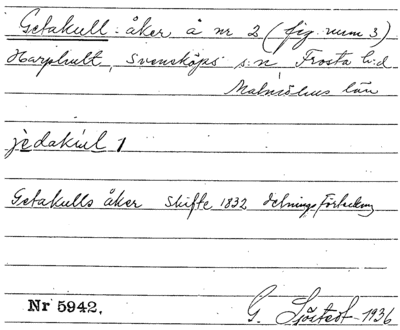 Getakull: åker å nr 2 (fig. num 3)
Harphult, Svensköps s:n Frosta h:d
Malmöhus län
jèdakúl 1
Getakulls åker skifte 1832 delningsförteckning
Nr 5942.
G. Sjöstedt 1936